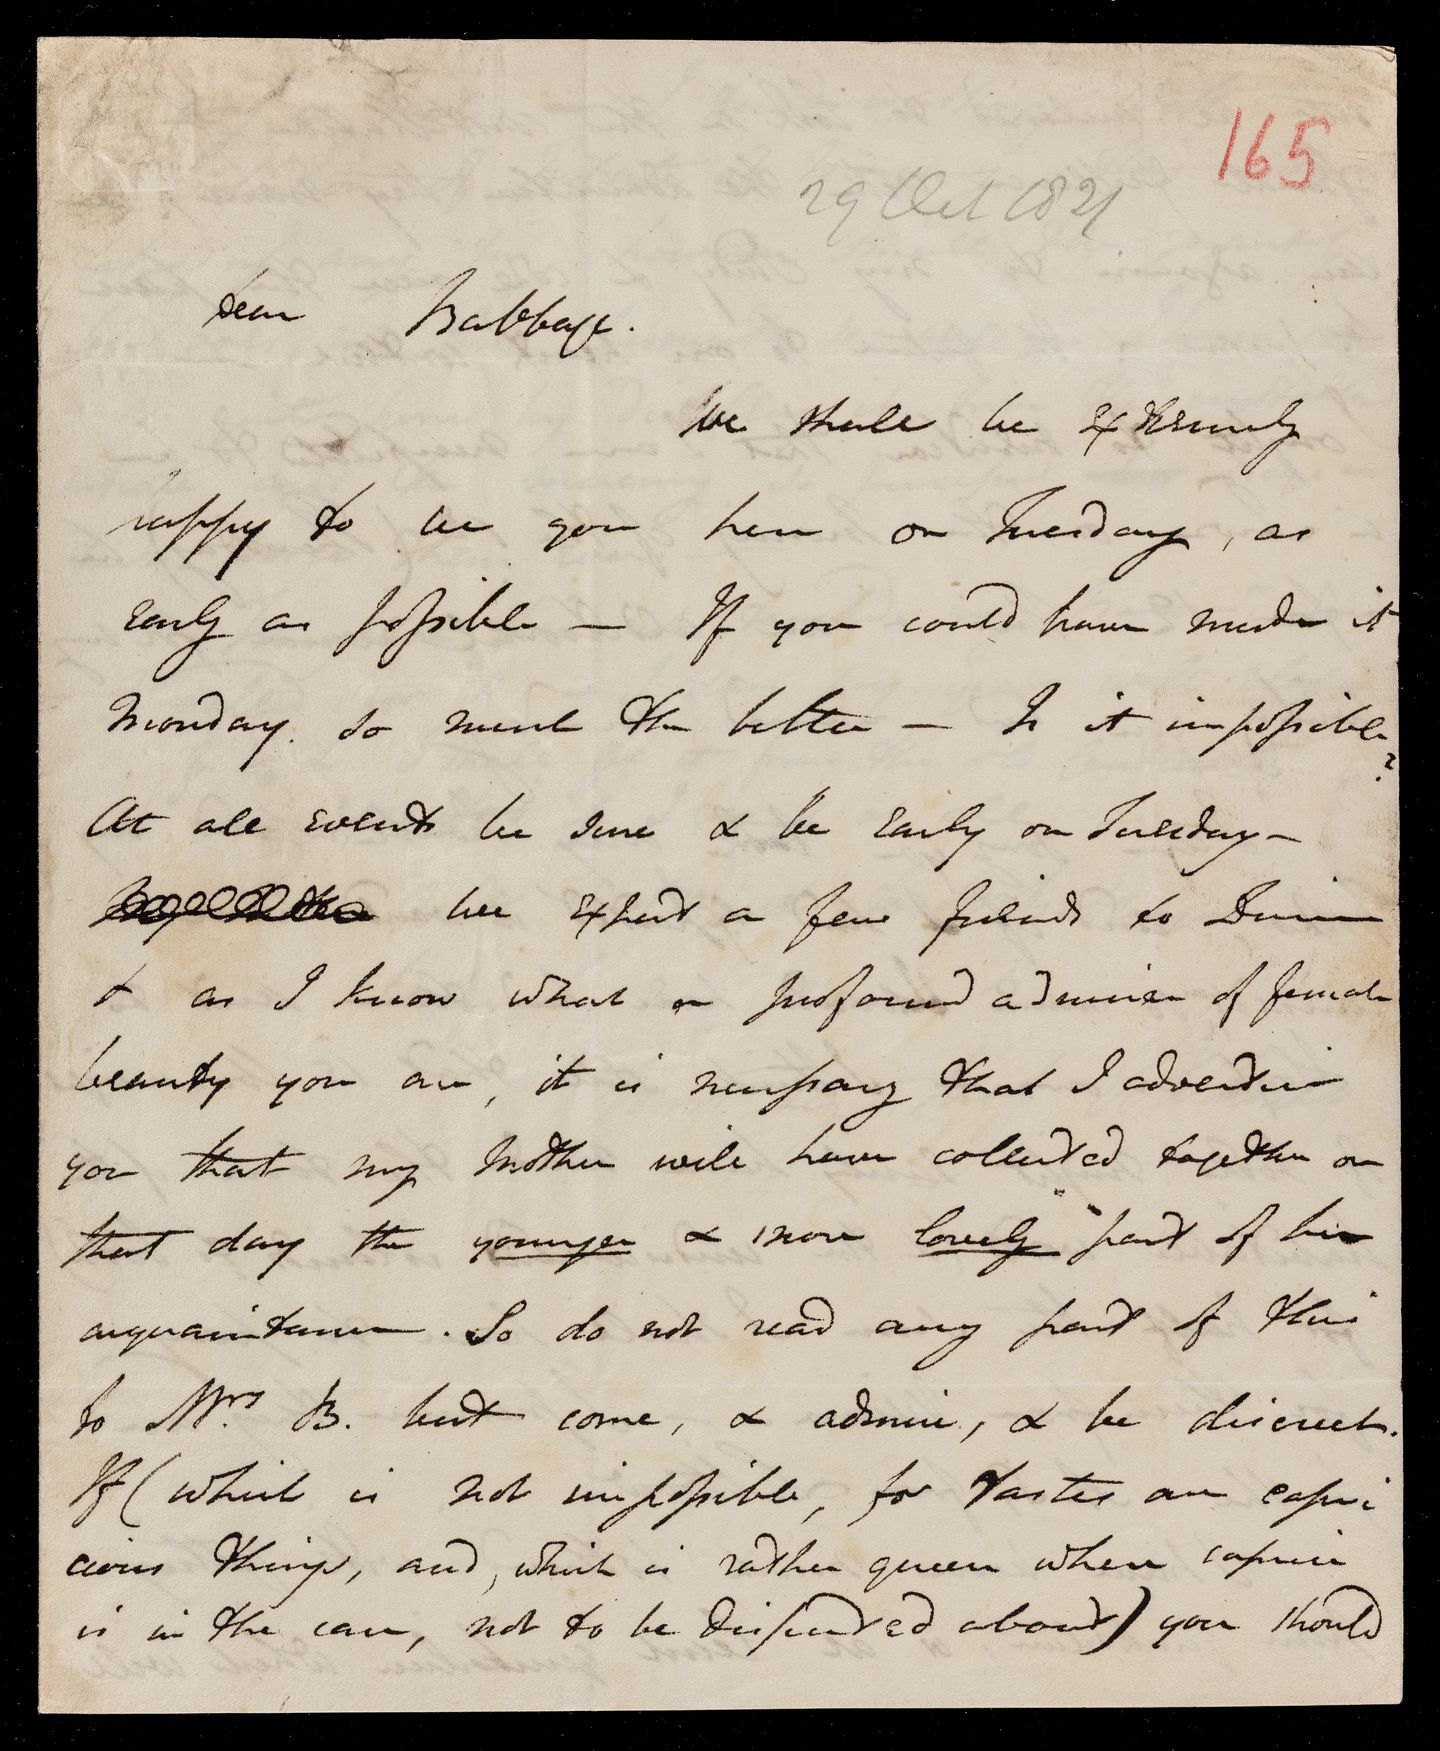 165
29 Oct 1821
Dear Babbage.
We shall be extremely
happy to see you here on Tuesday, as
early as possible — If you could have made it
Monday. so much the better — Is it impossible?
At all events be sure & be early on Tuesday —
we expect a few friends to Dinner
& as I know what a profound admirer of female
beauty you are, it is necessary that I advertise
you that my Mother will have collected together on
that day the younger & more "lovely" part of her
acquaintance. So do not read any part of this
to Mrs. B. but come, & admire, & be discreet.
If (which is not impossible, for tastes are capri
cious things, and, which is rather queer when caprice
is in the case, not to be disputed about) you should